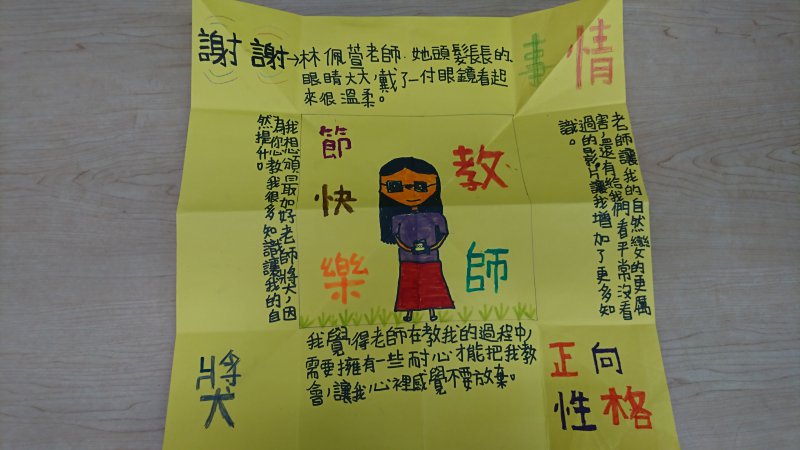 謝謝→林佩萱老師.她頭髮長長的,
眼睛大大,戴了一付眼鏡看起
來很溫柔。
事情
老師讓我的自然變的更厲
害,還有給我們看平常沒看
過的影片讓我增加了更多知
識。
教師
節快樂
我想頒最加好老師獎,因
為你教我很多知識讓我的自
然提升。
我覺得老師在教我的過程中,
需要擁有一些耐心才能把我教
會,讓我心裡感覺不要放棄。
獎
正向
性格